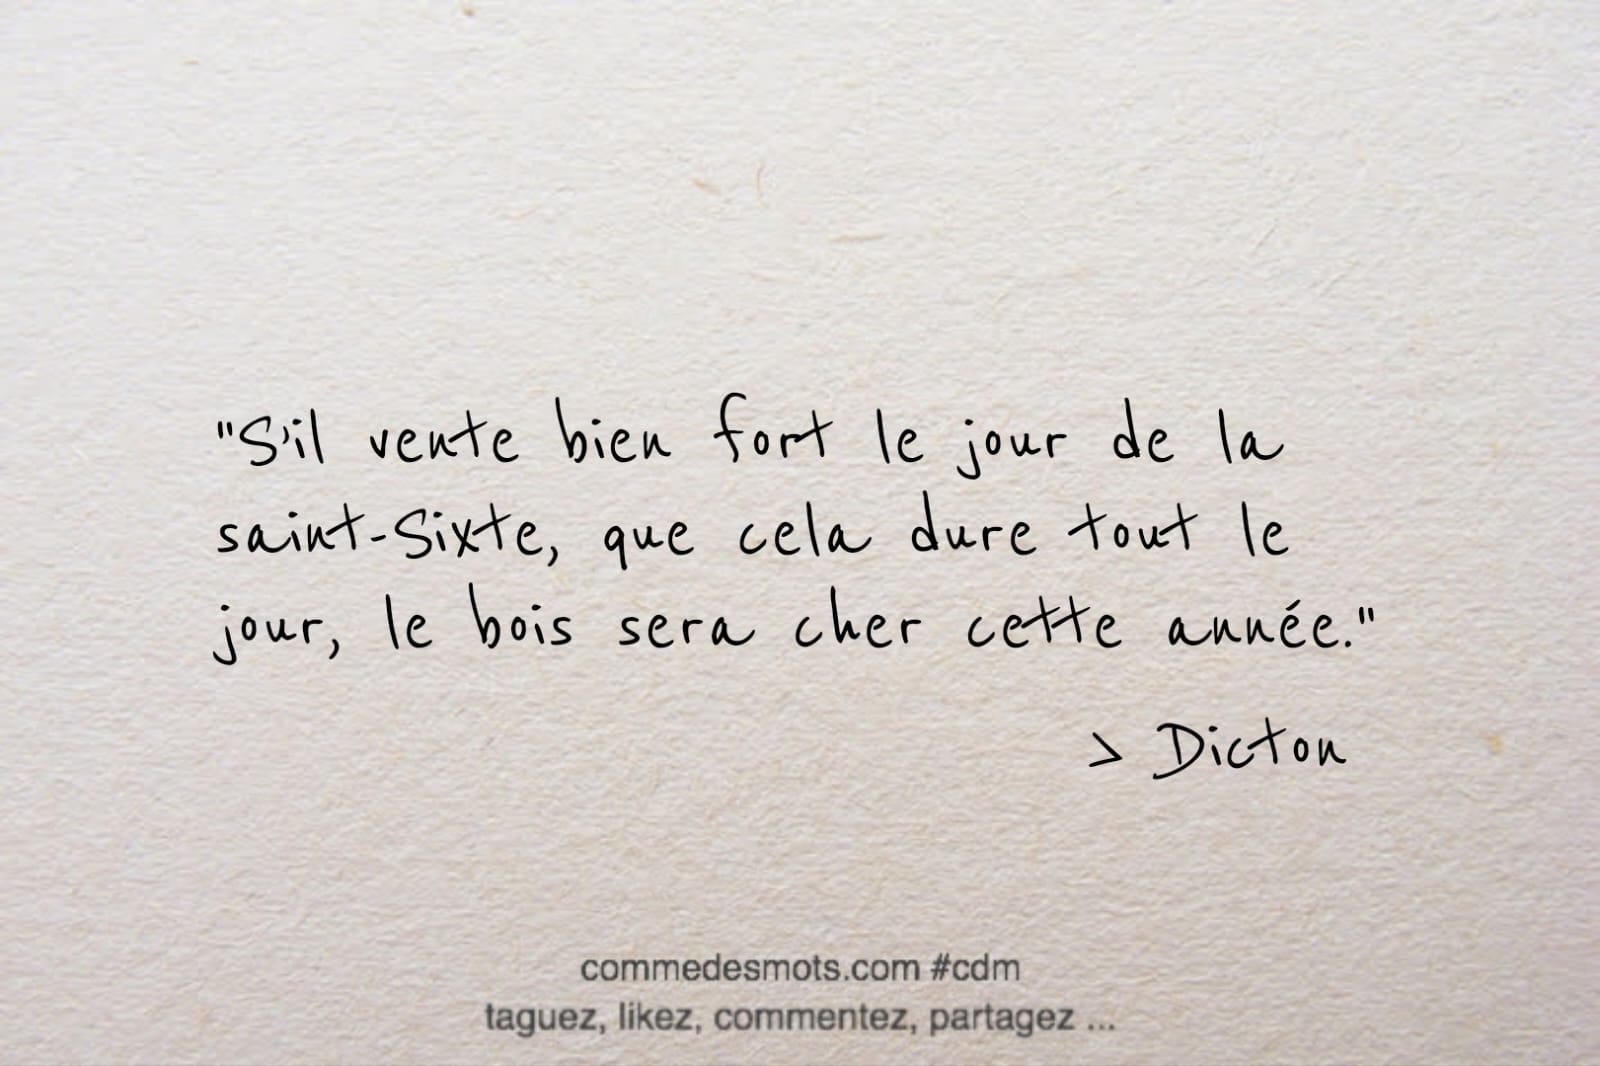 "S'il vente bien fort le jour de la
saint-Sixte, que cela dure tout le
jour, le bois sera cher cette année."
> Dicton
commedesmots.com #cdm
taguez, likez, commentez, partagez ...